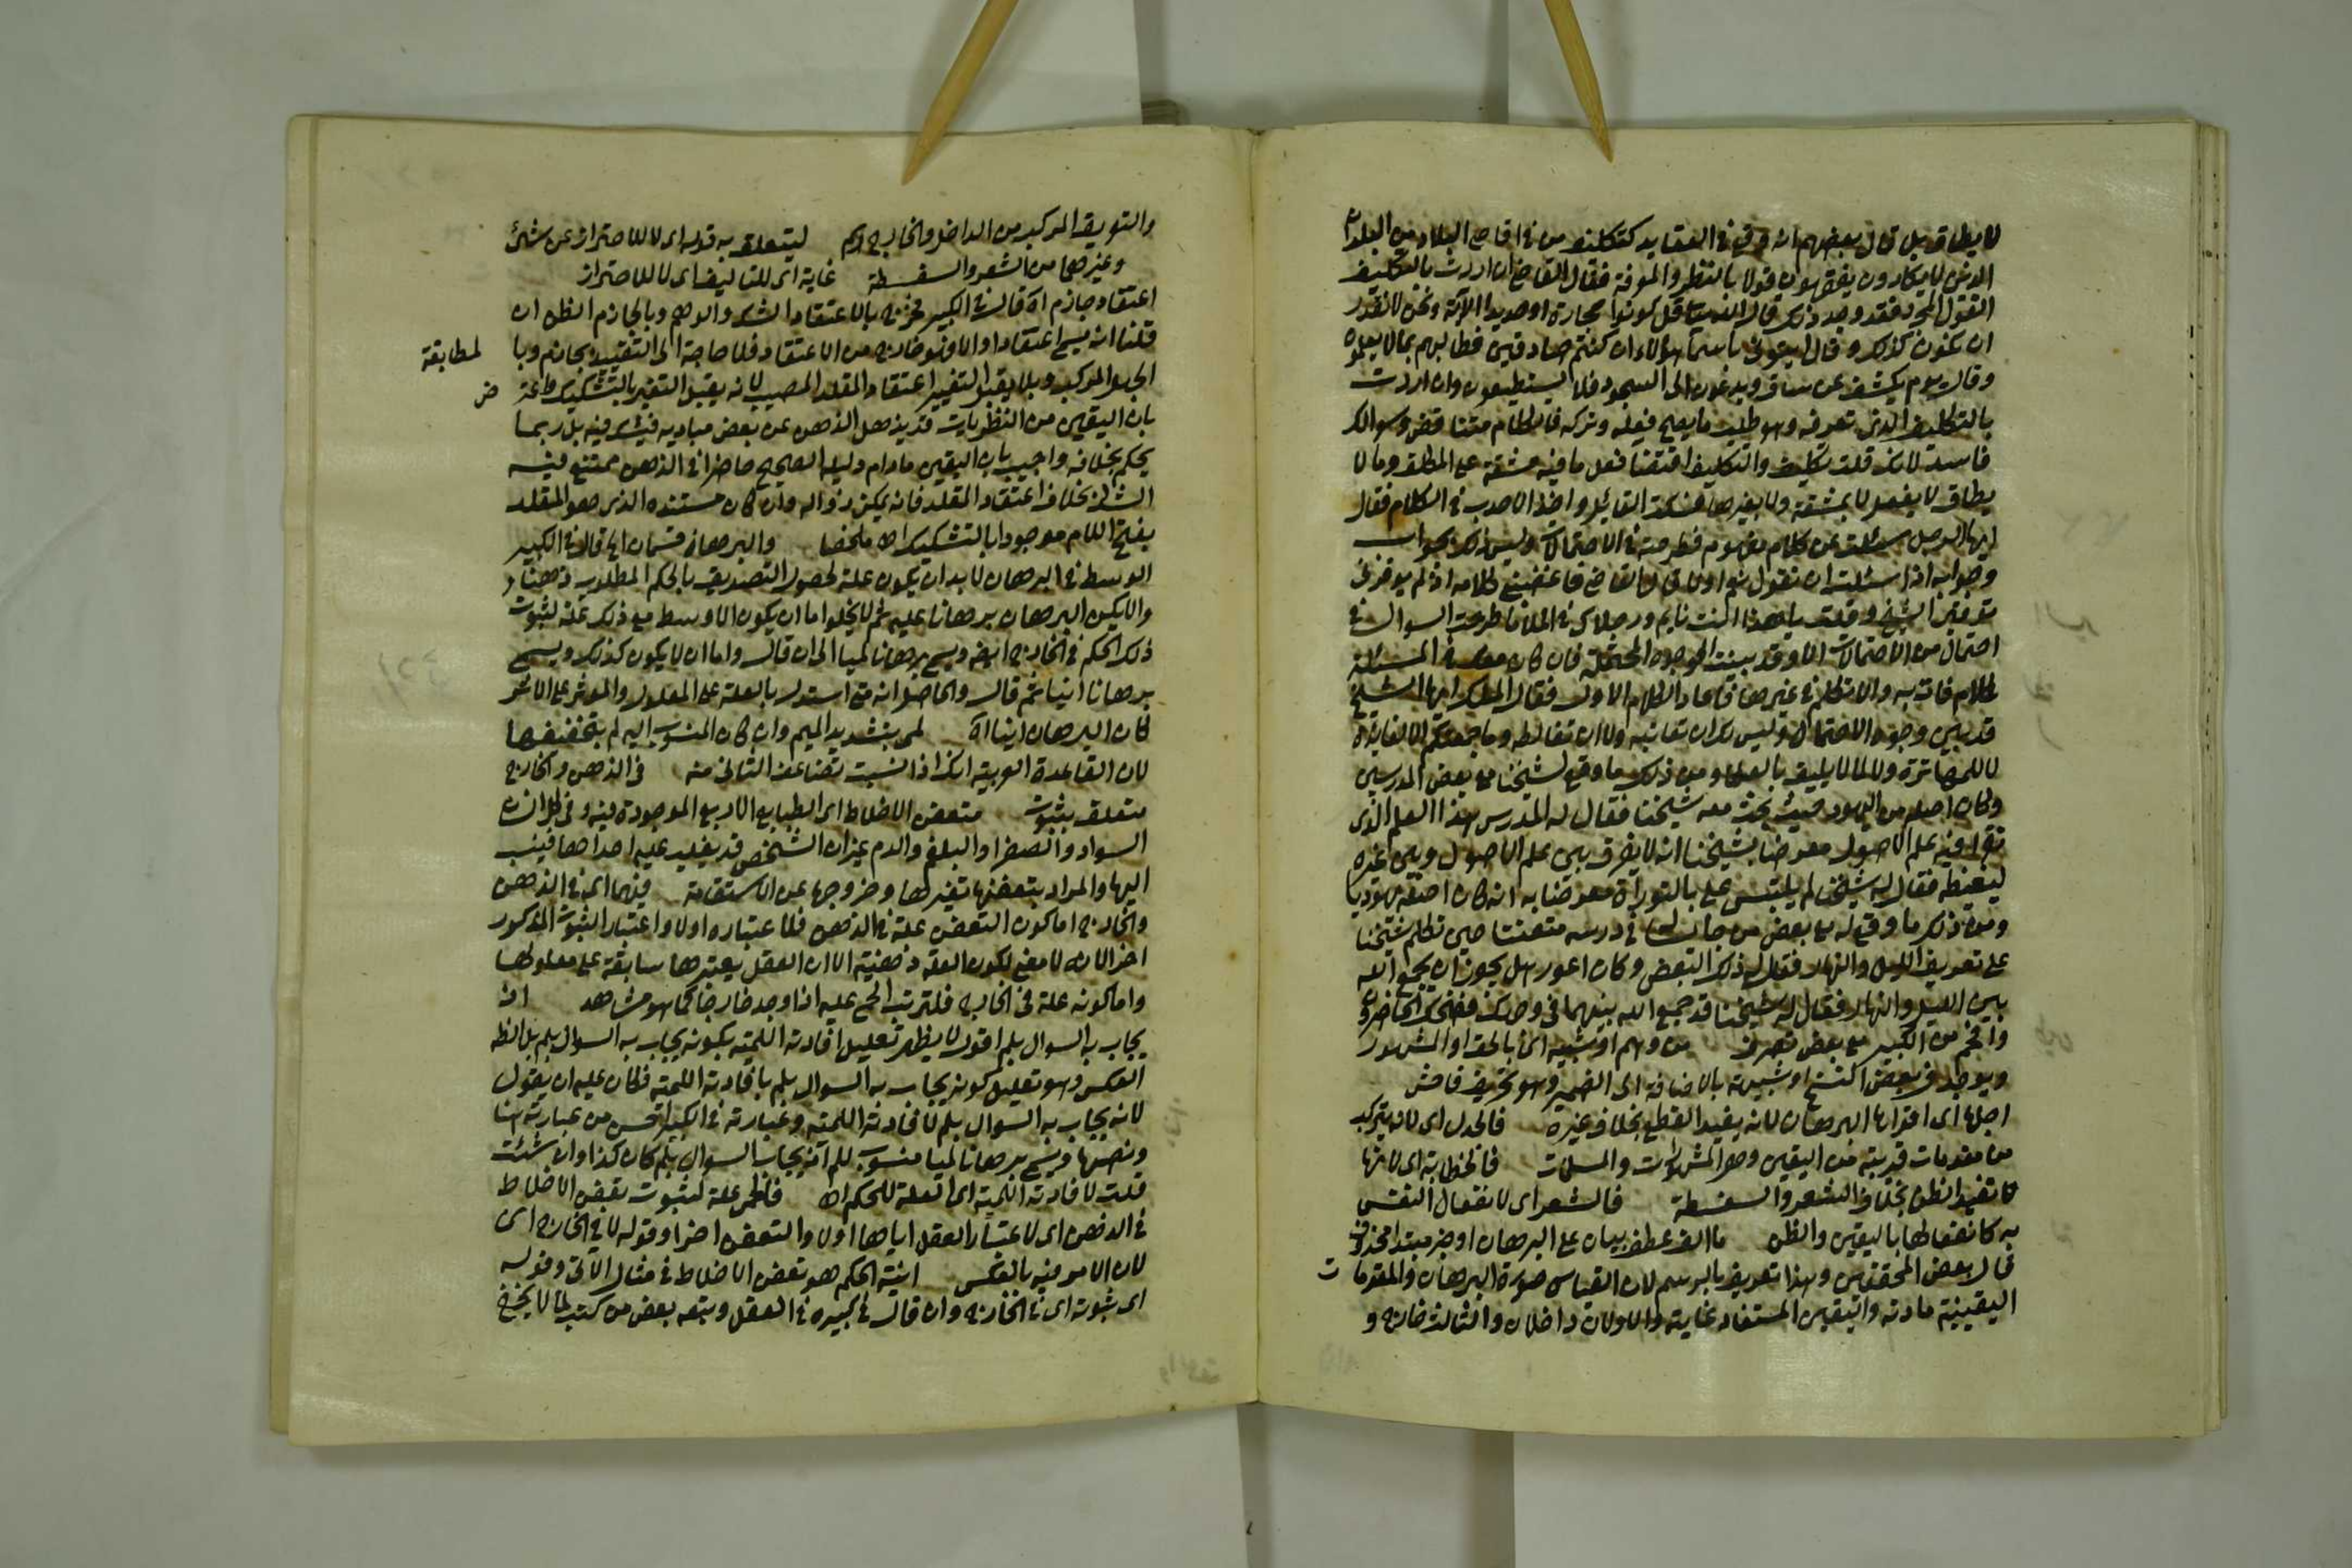 لا يطاق بل قال بعضهم انه وقع في العقايد كتكليف من في اقاصي البلاد من البلدان
الذين لا يكادون يفقهون قولا بالنظر والمعرفة فقال القاضي ان اردت بالتكليف
القول المجرد فقد وجد ذلك قال الله قل كونوا حجارة او حديدا الآية ونحن لا نقدر
ان نكون كذلك وقال انبئوني باسماء هؤلاء ان كنتم صادقين فطالبهم بما لا يعلموه
وقال يوم يكشف عن ساق ويدعون الى السجود فلا يستطيعون وان اردت
بالتكليف الذي تعرفه وهو طلب ما يصح فعله وتركه فالكلام متناقض وسوالك
فاسد لانك قلت تكليف والتكليف اقتضا فعل ما فيه مشقة على المكلف وما لا
يطاق لا يفعل لا بمشقة ولا بغيرها فسكت القايل واخذ الاحدب في الكلام فقال
ايها الرجل سئلت عن كلام مفهوم فطرحته في الاحتمالات وليس ذلك بجواب
وجوابه اذا سئلت ان تقول نعم اولا قال القاضي فاغضبني كلامه اذ لم يوقرني
توقير الشيخ وقلت يا هذا انت نايم ورجلاك في الماء ما طرحت السوال في
احتمال من الاحتمالات الا وقد بينت الوجوه المحتملة فان كان معك في المسئلة
كلام فات به والا تكلم في غيرها فاعاد الكلام الاول فقال الملك ايها الشيخ
قد بين وجوه الاحتمال وليس لك ان تعاتبه ولا ان تغالطه وما جمعتكم الا للفايدة
لا للمهاترة ولا لما لا يليق بالعلما ومن ذلك ما وقع لشيخنا مع بعض المدرسين
وكان اصله من اليهود حيث بحث معه شيخنا فقال له المدرس هذا العلم الذي
نقرا فيه علم الاصول معرضا بشيخنا انه لا يفرق بين علم الاصول وبين غيره
ليغيظه فقال له شيخنا لم يلتبس علي بالتوراة معرضا به انه كان اصله يهوديا
ومن ذلك ما وقع له مع بعض من جالسه في درسه متعنتا حين تكلم شيخنا
على تعريف الليل والنهار فقال له ذلك البعض وكان اعور هل يجوز ان يجمع الله
بين الليل والنهار فقال له شيخنا قد جمع الله بينهما في وجهك فضحك الحاضرون
من الكبير مع بعض تصرف من وهم او شبيه اي بالحق او المشهور
ويوجد في بعض النسخ او شبيهة بالاضافة الى الضمير وهو تحريف فاحش
اجلها اي اقواها البرهان لانه يفيد القطع بخلاف غيره فالجدل اي لانه يتركب
من مقدمات قريبة من اليقين وهو المشهورات والمسلمات فالخطابة اي لانها
لا تفيد الظن بخلاف الشعر والسفسطة فالشعر اي لانفعال النفس
به كانفعالها باليقين والظن ما الف عطف بيان على البرهان او خبر مبتدا محذوف
قال بعض المحققين وهذا تعريف بالرسم لان القياس صورة البرهان والمقدمات
اليقينية مادته واليقين المستفاد غايته والاولان داخلان والثالث خارج و
والتعريف المركب من الداخل والخارج رسم ليتعلق به قوله اي لا للاحتراز عن شئ
وغيرهما من الشعر والسفسطة غاية اي للتاليف اي لا للاحتراز
اعتقاد جازم اه قال في الكبير فخرج بالاعتقاد الشك والوهم وبالجازم الظن ان
قلنا انه يسمى اعتقادا والا فهو خارج من الاعتقاد فلا حاجة الى التقييد بجازم وبا
لمطابقة
الجهل المركب وبلا يقبل التغيير اعتقاد المقلد المصيب لانه يقبل التغير بالتشكيك
بان اليقين من النظريات قد يذهل الذهن عن بعض مباديه فيشك فيه بل ربما
يحكم بخلافه واجيب بان اليقين مادام دليله الصحيح حاضرا في الذهن يمتنع فيه
الشك بخلاف اعتقاد المقلد فانه يمكن زواله وان كان مستنده الذي هو المقلد
بفتح اللام موجودا بالتشكيك اه ملخصا والبرهان قسمان الخ قال في الكبير
الوسط في البرهان لا بد ان يكون علة لحصول التصديق بالحكم المطلوب ذهنا
والا لم يكن البرهان برهانا عليه ثم لا يخلو اما ان يكون الاوسط مع ذلك علة لثبوت
ذلك الحكم في الخارج ايضا ويسمى برهانا لميا الى ان قال واما ان لا يكون كذلك ويسمى
برهانا انيا ثم قال والحاصل انه متى استدل بالعلة على المعلول والموثر على الاثر
كان البرهان انيا اه لمي بتشديد الميم وان كان المنسوب اليه لم بتخفيفها
لان القاعدة العربية انك اذا نسبت تضاعف الثاني منه في الذهن والخارج
متعلق بثبوت متعفن الاخلاط اي الطبايع الاربع الموجودة فيه وفي كل انسان
السواد والصفرا والبلغم والدم غير ان الشخص قد يغلب عليه احداها فينسب
اليها والمراد بتعفنها تغيرها وخروجها عن الاستقامة فيهما اي في الذهن
والخارج اما كون التعفن علة في الذهن فلاعتباره اولا واعتبار الثبوت المذكور
اخرا لانه لا معنى لكون العلة ذهنية الا ان العقل يعتبرها سابقة على معلولها
واما كونه علة في الخارج فلترتب الحمى عليه اذا وجد خارجا كما هو مشاهد اذ
يجاب به السوال بلم اقول لا يظهر تعليل افادته اللمية بكونه يجاب به السوال بلم بل الظ
العكس وهو تعليل كونه يجاب به السوال بلم بافادته اللمية فكان عليه ان يقول
لانه يجاب به السوال بلم لافادته اللمية وعبارته في الكبير احسن من عبارته هنا
ونصها ويسمى برهانا لميا منسوب للم انه يجاب السوال بلم كان كذا وان شئت
قلت لافادته اللمية اي العلة للحكم اه فالحمى علة لثبوت تعفن الاخلاط
في الذهن اي لاعتبار العقل اياها اولا والتعفن اخرا وقوله لا في الخارج اي
لان الامر فيه بالعكس انية الحكم هو تعفن الاخلاط في مثال الاتي وقوله
اي ثبوته اي في الخارج وان قال في كبيره في العقل وتبعه بعض من كتب لما لا يخفى